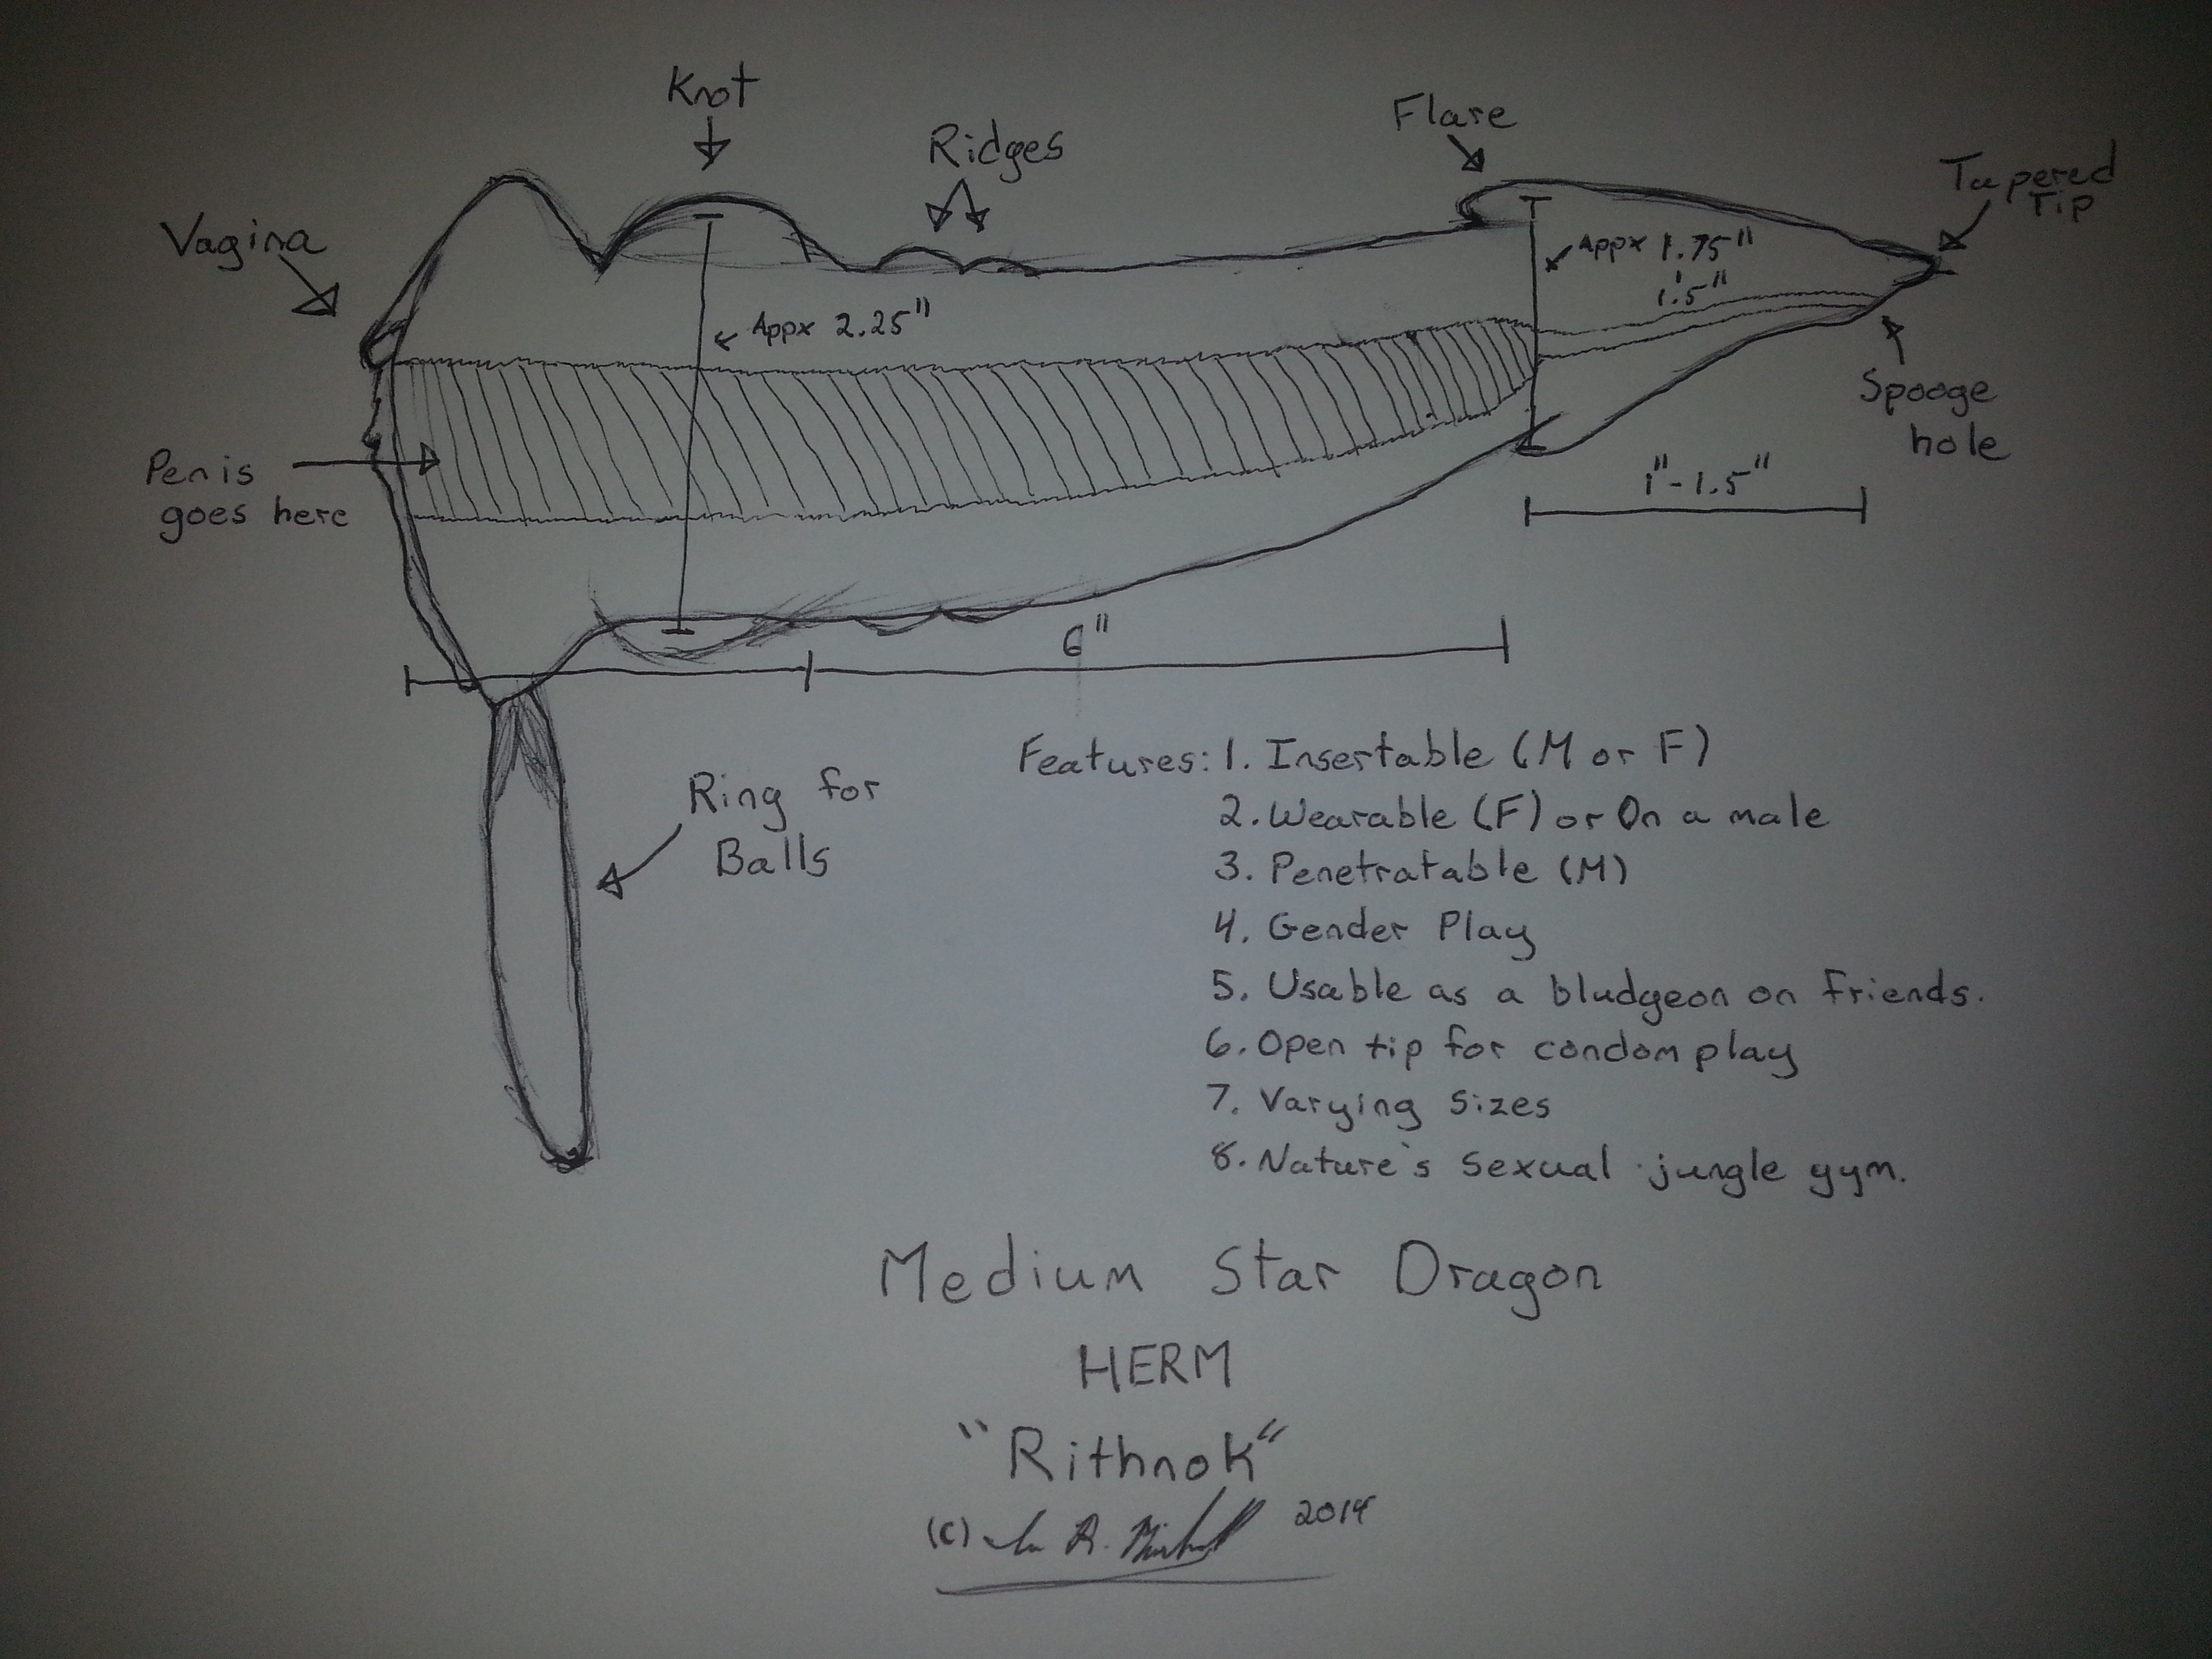 Knot
Ridges
Flare
Tapered
Tip
Vagina
Appx 1.75"
1.5"
Appx 2.25"
Spooge
hole
Penis
goes here
1"-1.5"
6"
Ring for
Balls
Features: 1. Insertable (M or F)
2. Wearable (F) or On a male
3. Penetratable (M)
4. Gender Play
5. Usable as a bludgeon on friends.
6. Open tip for condom play
7. Varying sizes
8. Nature's sexual jungle gym.
Medium Star Dragon
HERM
"Rithnok"
(C) R. 2014